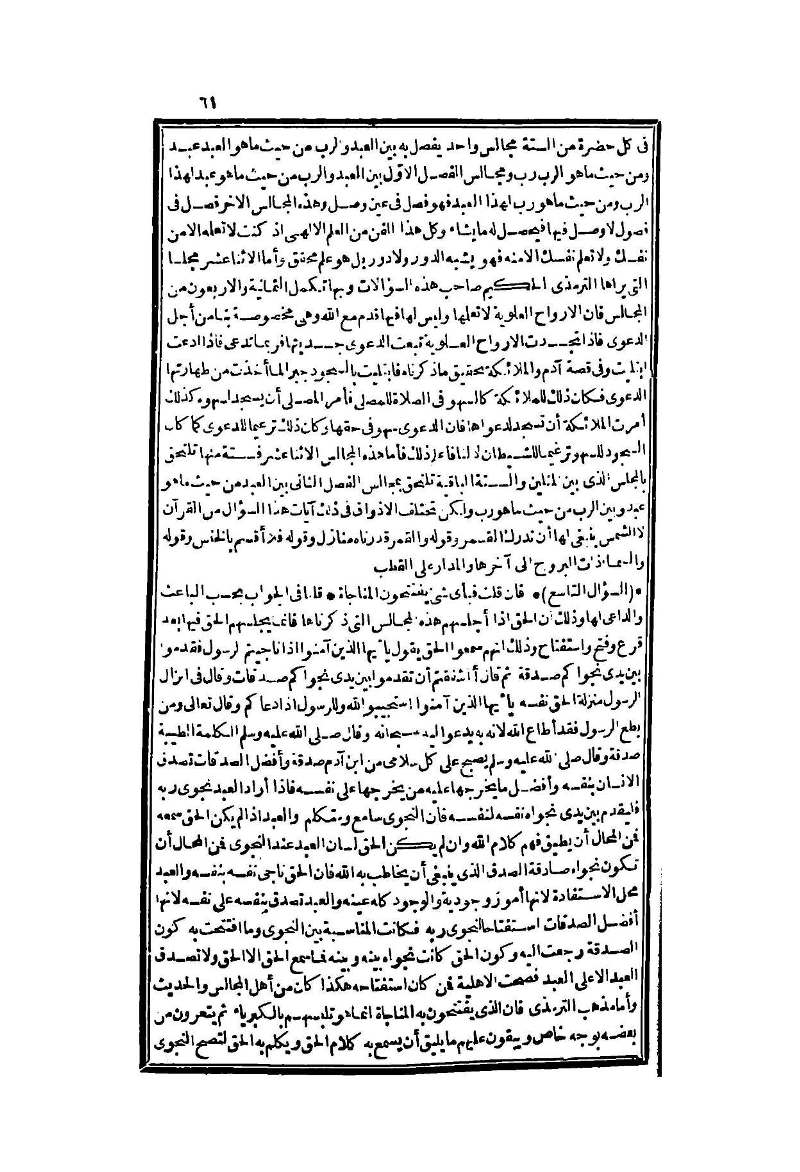 ٦١
فى كل حضرة من الستة مجالس واحد يفصل به بين العبد والرب من حيث ما هو العبد عبد
ومن حيث ما هو الرب رب ومجالس الفصل الاوّل بين العبد والرب من حيث ما هو عبد لهذا
الرب ومن حيث ما هو رب لهذا العبد فهو فصل فى عين وصل وهذه المجالس الاخر فصل فى
فصول لا وصل فيها فيحصل له ما يشاء وكل هذا الفن من العلم الالهى اذ كنت لا تعلمه الامن
نفسك ولا تعلم نفسك الامنه فهو يشبه الدور ولا دور بل هو علم محقق وأما الاثنا عشر مجلسا
التى يراها الترمذى الحكيم صاحب هذه السؤالات وبها تكمل الثمانية والاربعون من
المجالس فان الارواح العلوية لا تعلمها وليس لها فيها قدم مع الله وهى مخصوصة بنا من أجل
الدعوى فاذا تجسدت الارواح العلوية تبعت الدعوى جسديتها فربما تدعى فاذا ادعت
ابتليت وفى قصة آدم والملائكة تحقيق ما ذكرناه فابتليت بالسجود جبرا لما أخذت من طهارتها
الدعوى فكان ذلك للملائكة كالسهو فى الصلاة للمصلى فأمر المصلى أن يسجد لسهوه كذلك
أمرت الملائكة أن تسجد لدعواها فان الدعوى سهو فى حقها وكان ذلك ترغيما للدعوى كما كان
السجود للسهو ترغيما للشيطان لا لنا فاعلم ذلك فأما هذه المجالس الاثنا عشر فستة منها تلتحق
بالمجلس الذى بين المثلين والستة الباقية تلتحق بمجالس الفصل الثانى بين العبد من حيث ما هو
عبد وبين الرب من حيث ما هو رب ولكن تختلف الاذواق فى ذلك آيات هذا السؤال من القرآن
لا الشمس ينبغى لها أن تدرك القمر وقوله والقمر قدرناه منازل وقوله فلا أقسم بالخنس وقوله
والسماء ذات البروج الى آخرها والمدار على القطب
• (السؤال التاسع) • فان قلت فبأى شئ يفتتحون المناجاة • قلنا فى الجواب بحسب الباعث
والداعى لها وذلك أن الحق اذا أجلسهم هذه المجالس التى ذكرناها فانما يجلسهم الحق فيها بعد
قرع وفتح واستفتاح وذلك انهم سمعوا الحق يقول يا أيها الذين آمنوا اذا ناجيتم الرسول فقدموا
بين يدى نجواكم صدقة ثم قال أأشفقتم أن تقدموا بين يدى نجواكم صدقات وقال فى انزال
الرسول منزلة الحق نفسه يا أيها الذين آمنوا استجيبوا لله وللرسول اذا دعاكم وقال تعالى ومن
يطع الرسول فقد أطاع الله لانه به يدعو اليه سبحانه وقال صلى الله عليه وسلم الكلمة الطيبة
صدقة وقال صلى الله عليه وسلم يصبح على كل سلامى من ابن آدم صدقة وأفضل الصدقات تصدق
الانسان بنفسه وأفضل ما يخرجها عليه من يخرجها على نفسه فاذا أراد العبد نجوى ربه
فليقدم بين يدى نجواه نفسه لنفسه فان النجوى سامع ومتكلم والعبد اذا لم يكن الحق سمعه
فمن المحال أن يطيق فهم كلام الله وان لم يكن الحق لسان العبد عند النجوى فمن المحال أن
تكون نجواه صادقة الصدق الذى ينبغى أن يخاطب به الله فان الحق ناجى نفسه بنفسه والعبد
محل الاستفادة لانها أمور وجودية والوجود كله عينه والعبد تصدق بنفسه على نفسه لانها
أفضل الصدقات استفتاحا لنجوى ربه فكانت المناسبة بين النجوى وما افتتحت به كون
الصدقة رجعت اليه وكون الحق كانت نجواه بينه وبينه فما سمع الحق الا الحق ولا تصدق
العبد الا على العبد فصحت الاهلية فمن كان استفتاحه هكذا كان من أهل المجالس والحديث
وأما مذهب الترمذى فان الذى يفتتحون به المناجاة انما هو تلبسهم بالكبرياء ثم يتعرون من
بعضه بوجه خاص ويبقون عليهم ما يليق أن يسمع به كلام الحق ويكلم به الحق لتصح النجوى